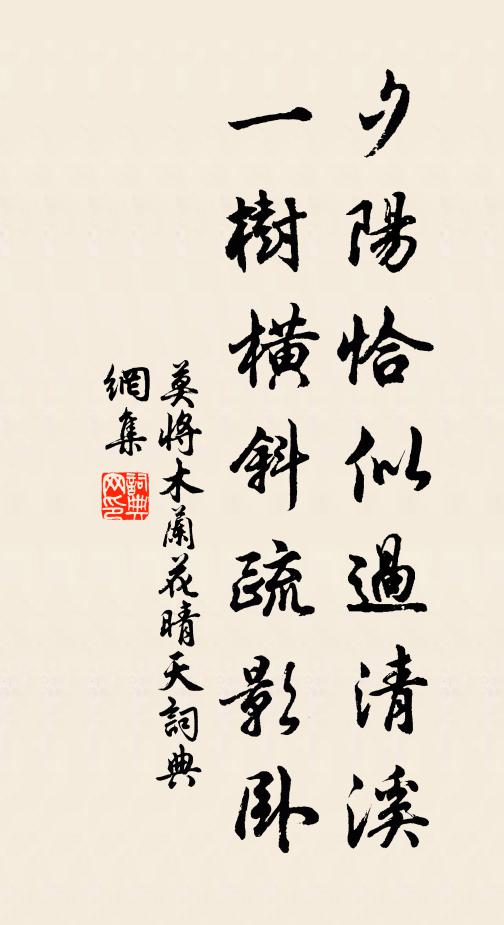 夕陽恰似過清溪
一樹橫斜疏影臥
莫將木蘭花晴天詞典
網集
詞典网印